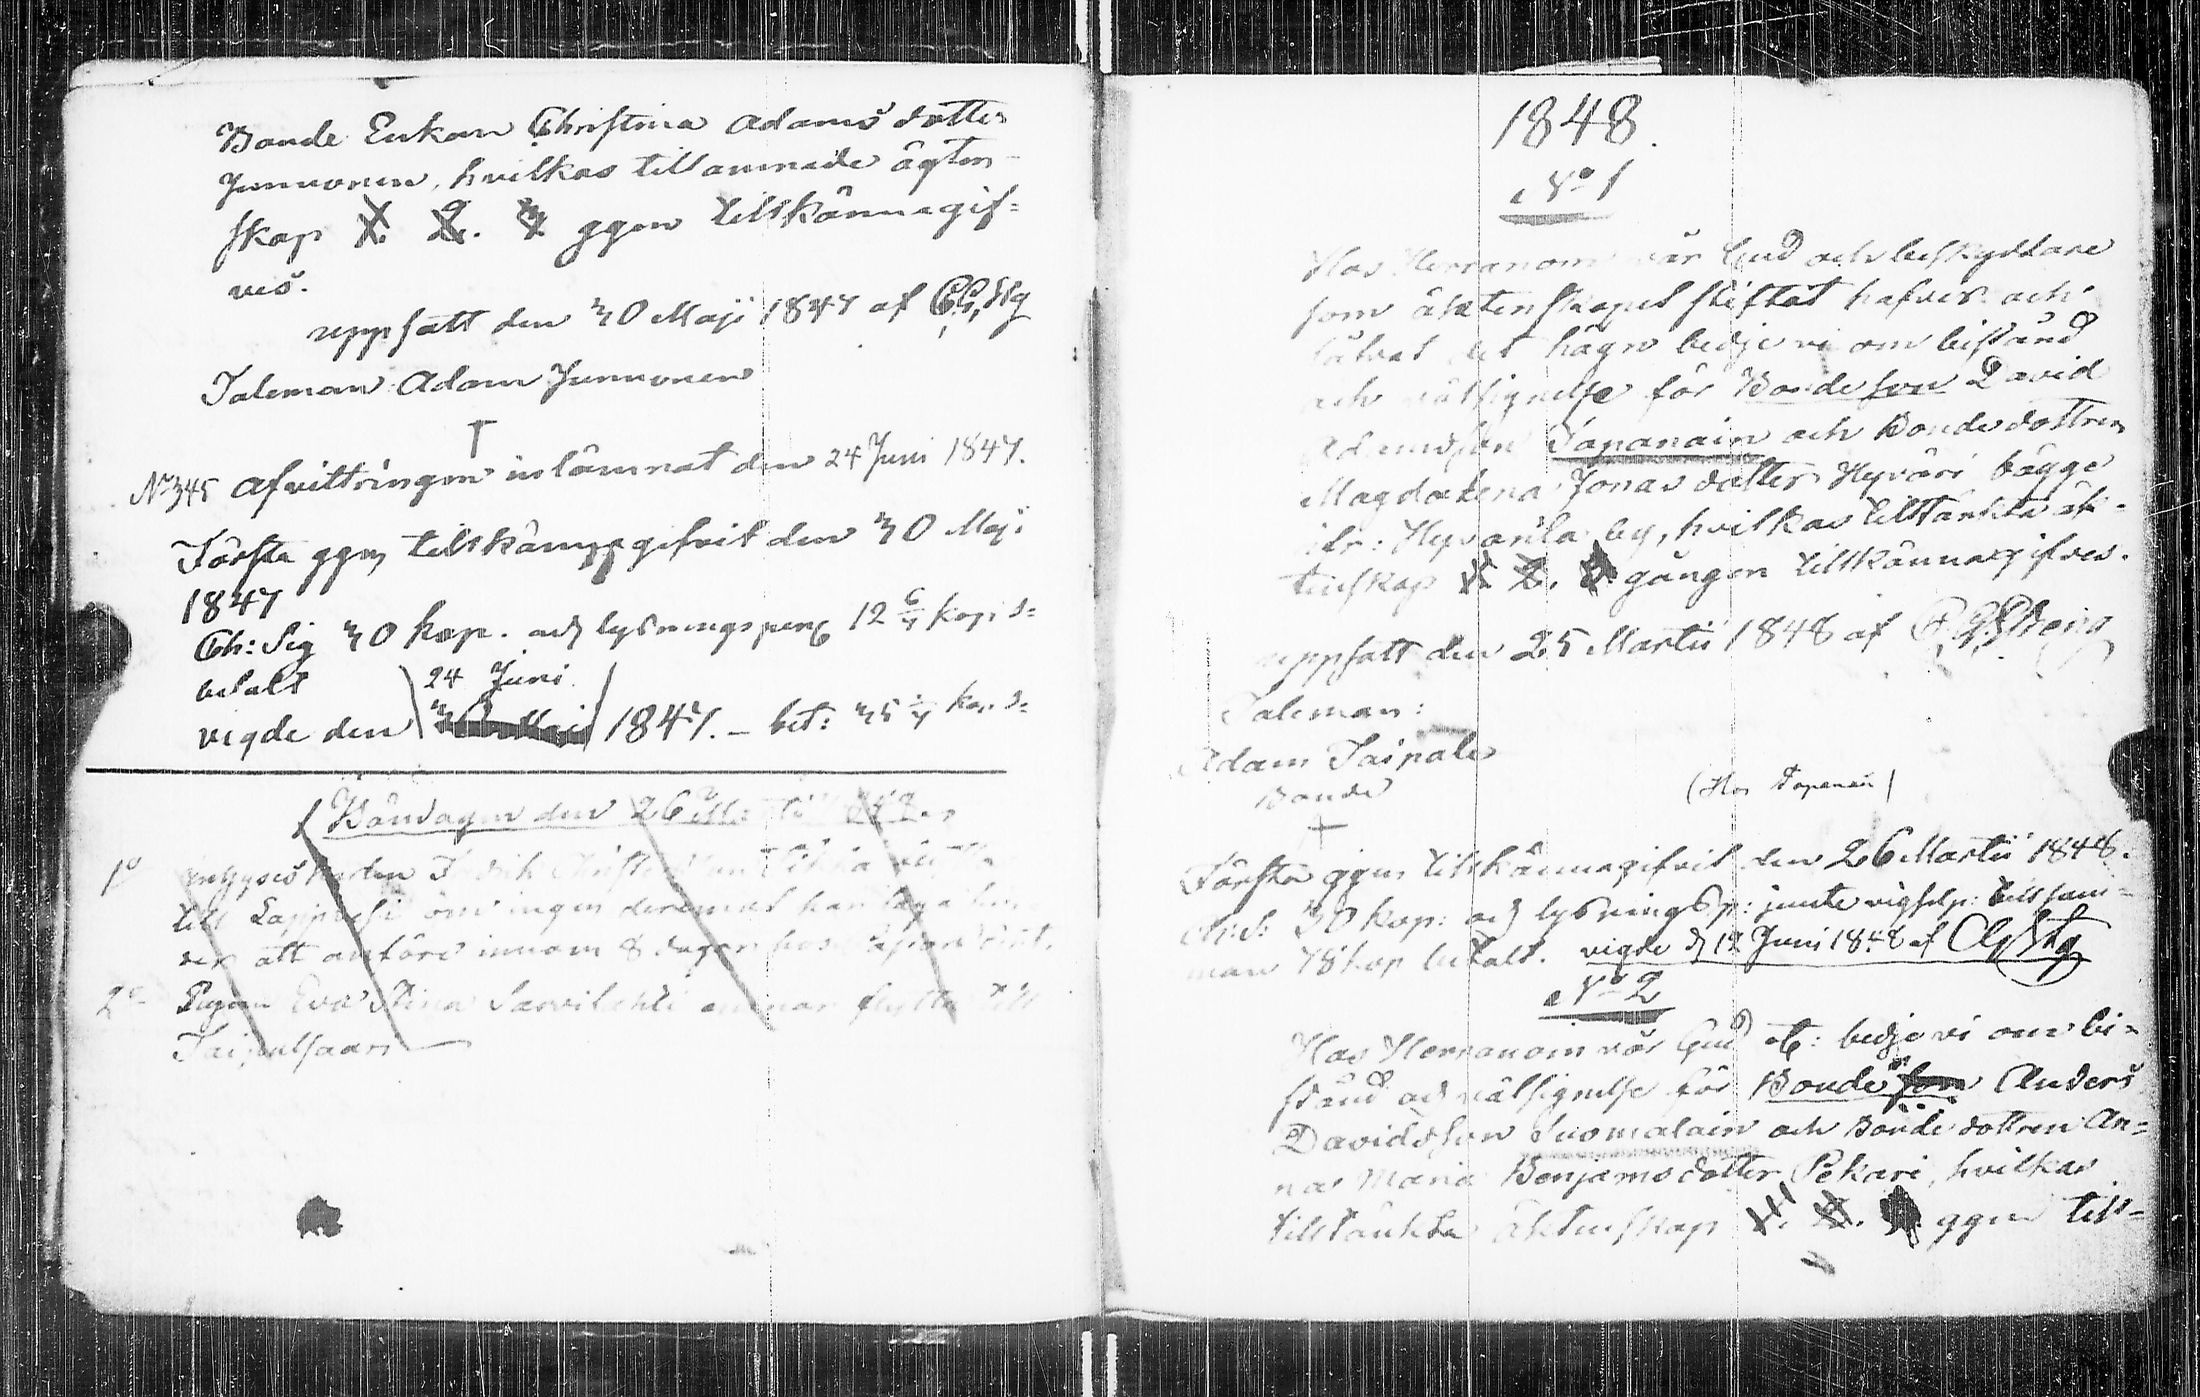 Bonde Enkan Christina Adams dotter
Junnonen, hvilkas tillamnade ägten-
skap 1. 2. 3 ggen tillkännagif=
ves.
uppsatt den 30 Maji 1847 af
Taleman Adam Junnonen
No 345 Afvittringen inlämnat den 24 Juni 1847.
Första ggen tillkännagifvit den 30 Maji
1847
Ch: Sig 30 kop. och lysningspeng 12 6/7 kop s=
betalt
24 Juni
vigde den 1847. – bet: 35 kop s=
Böndagen den 26
1o
till om ingen deremot har
att anföra innom 8 dagar hos
2o Pigan Eva Stina ämnar flytta till
1848.
No 1
Hos Herranom vår Gud och beskyddare
som äktenskapet stiftat hafver och
det hägn bedje vi om bistånd
och välsignelse för Bondeson David
Adamsson Tapanain och Bondedottren
Magdalena Jonasdotter Hyväri bägge
ifr: Hyvärilä by, hvilkas tilltänkta äk-
tenskap 1. 2. 3. gången tillkännagifves.
uppsatt den 25 Martii 1848 af
Taleman:
Adam Taipale
Bonde
(Hos Tapanain)
Första ggen tillkännagifvit den 26 Martii 1848.
30 kop: och lysningsp: jemte vigselp: tillsam=
man 78 kop betalt. vigde d 12 Juni 1848 af
No 2
Hos Herranom vår Gud etc: bedje vi om bi=
stånd och välsignelse för Bonde son Anders
Davidsson Suomalain och Bonde dottren An=
na Maria Benjamsdotter Pekari, hvilkas
tilltänkta äktenskap 1. 2. 3. ggen till=